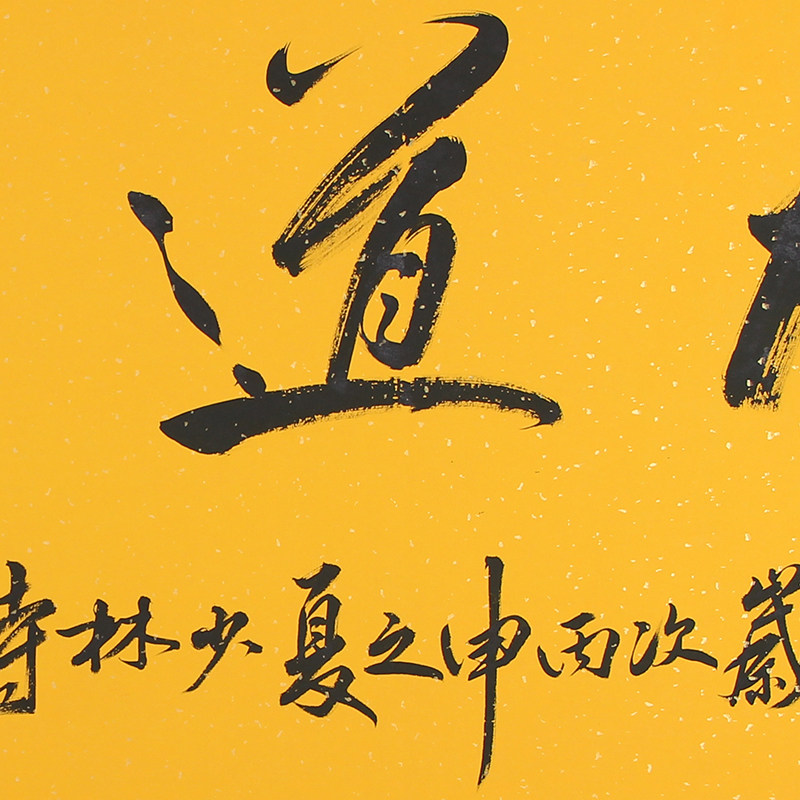 道
歲次丙申之夏少林寺